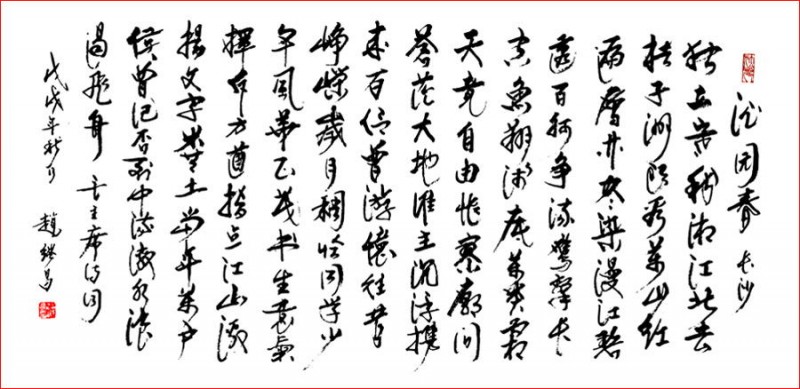 沁园春 长沙
独立寒秋湘江北去
桔子洲头看萬山红
遍层林尽染漫江碧
透百舸争流鹰擊长
空鱼翔浅底萬类霜
天竞自由怅寥廓问
苍茫大地谁主沉浮携
来百侣曾游忆往昔
峥嵘岁月稠恰同学少
年风华正茂书生意气
挥斥方遒指点江山激
扬文字粪土当年萬户
侯曾记否到中流激水浪
遏飞舟 毛主席诗词
戊戌年秋月 趙继